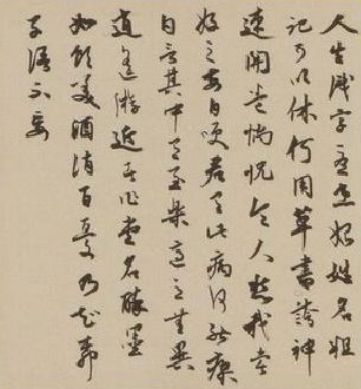 人生識字憂患始姓名粗
記可以休何用草書誇神
速開卷惝怳令人愁我嘗
好之每自笑君有此病何能瘳
自言其中有至樂適意無異
逍遙游近者作堂名醉墨
如飲美酒消百憂乃知柳
子語不妄